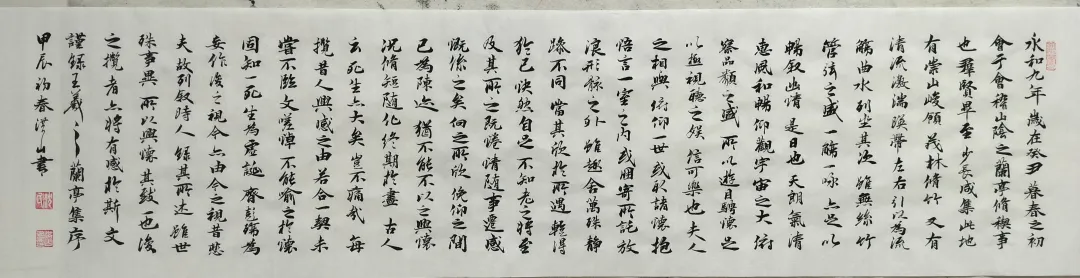 永和九年歲在癸丑暮春之初
會于會稽山陰之蘭亭脩禊事
也羣賢畢至少長咸集此地
有崇山峻領茂林脩竹又有
清流激湍暎帶左右引以為流
觴曲水列坐其次雖無絲竹
管弦之盛一觴一詠亦足以
暢叙幽情是日也天朗氣清
惠風和暢仰觀宇宙之大俯
察品類之盛所以遊目騁懷足
以極視聽之娛信可樂也夫人
之相與俯仰一世或取諸懷抱
悟言一室之內或因寄所託放
浪形骸之外雖趣舍萬殊靜
躁不同當其欣於所遇蹔得
於己快然自足不知老之將至
及其所之既惓情隨事遷感
慨係之矣向之所欣俛仰之閒
已為陳迹猶不能不以之興懷
況脩短隨化終期於盡古人
云死生亦大矣豈不痛哉每
攬昔人興感之由若合一契未
嘗不臨文嗟悼不能喻之於懷
固知一死生為虛誕齊彭殤為
妄作後之視今亦由今之視昔悲
夫故列叙時人錄其所述雖世
殊事異所以興懷其致一也後
之攬者亦將有感於斯文
謹錄王羲之蘭亭集序
甲辰初春洪山書